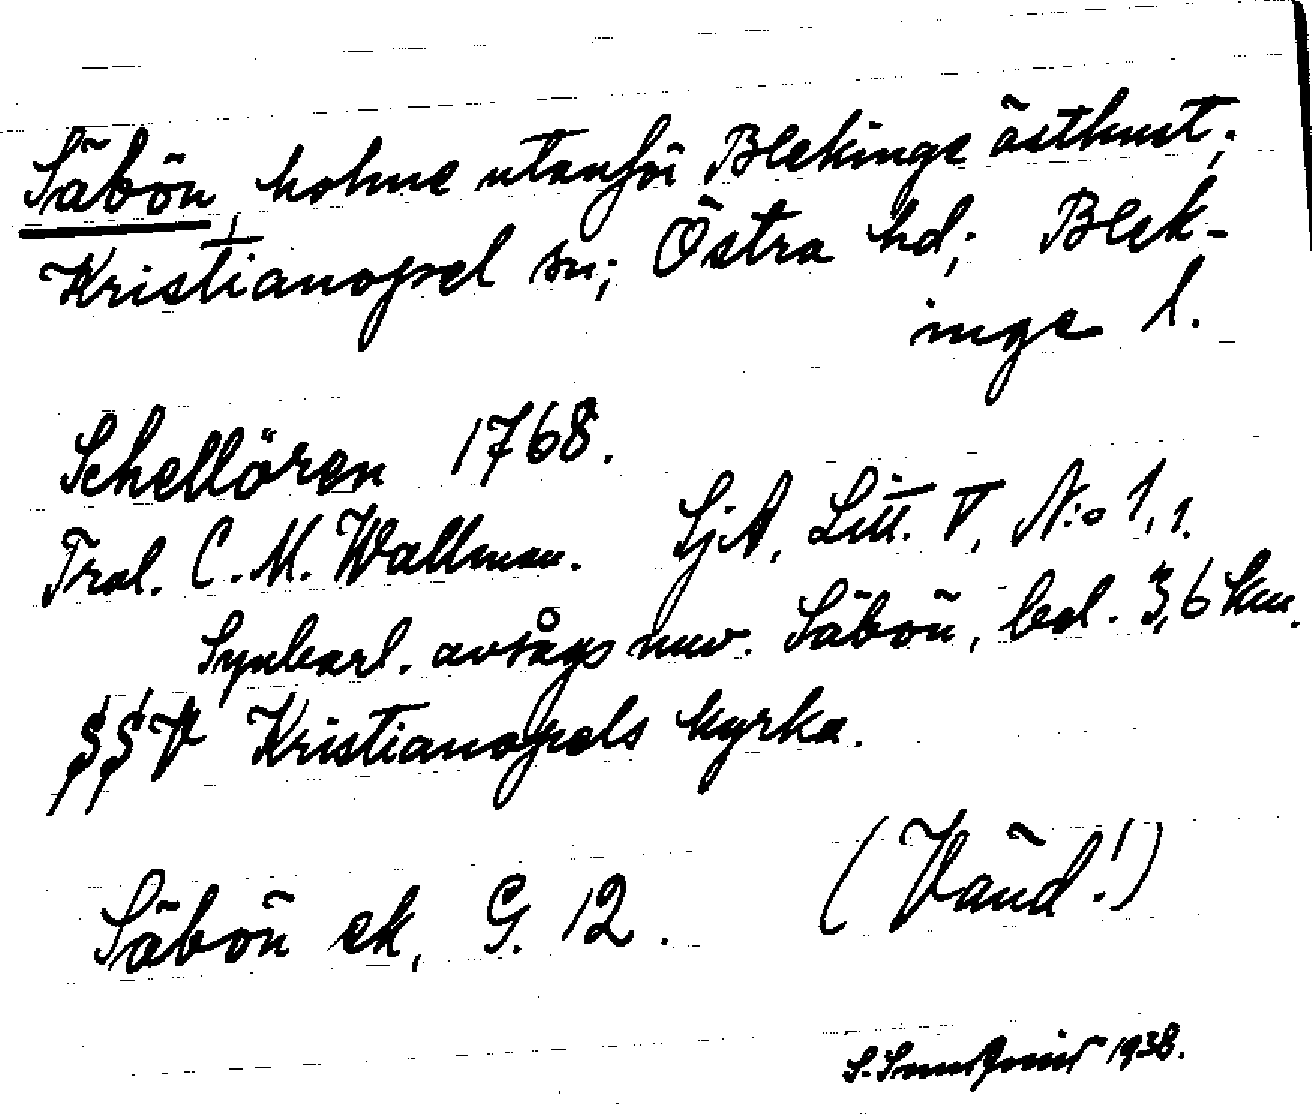 Säbön, holme utanför Blekinge östkust;
Kristianopel sn; Östra hd; Blek-
inge l.
Schellören 1768.
Trol. C. M. Wallman. SjA, Litt. V, N:o 1, 1.
Synbarl. avsågs nuv. Säbön, bel. 3,6 km.
SSV Kristianopels kyrka.
Säbön ek, G. 12. (Vänd!)
1938.